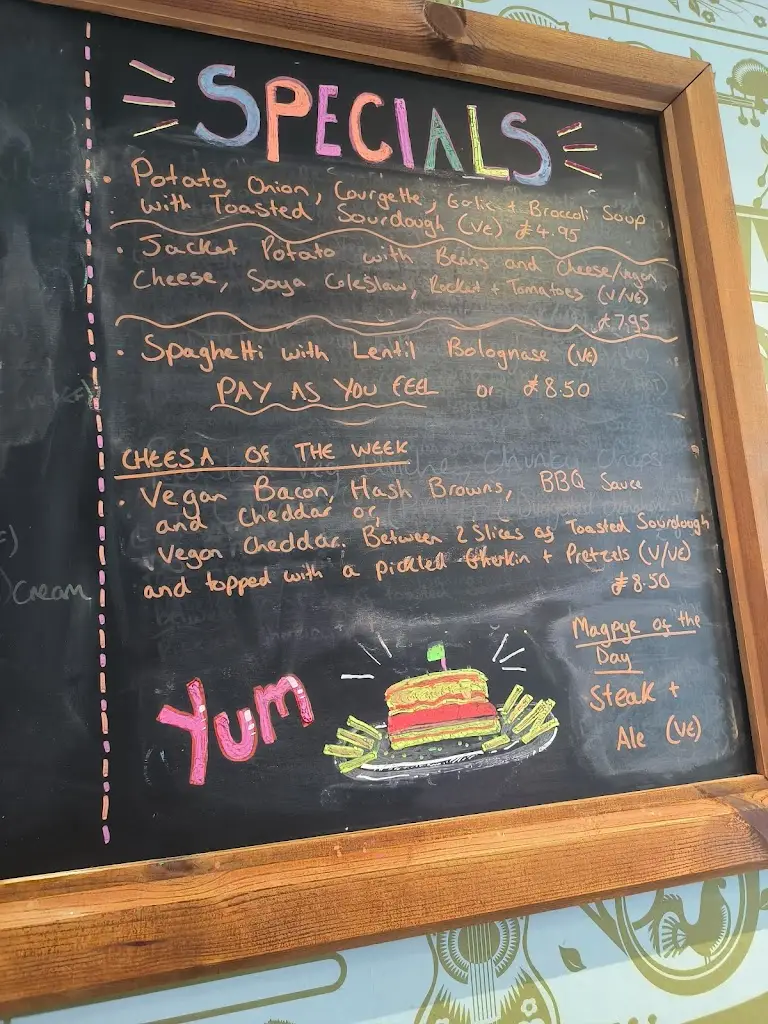 SPECIALS
• Potato, Onion, Courgette, Garlic + Broccoli Soup
with Toasted Sourdough (VE) £4.95
• Jacket Potato with Beans and Cheese/Vegan
Cheese, Soya Coleslaw, Rocket + Tomatoes (V/VE)
£7.95
• Spaghetti with Lentil Bolognase (VE)
PAY AS YOU FEEL or £8.50
CHEESA OF THE WEEK
• Vegan Bacon, Hash Browns, BBQ Sauce
and Cheddar or
Vegan Cheddar. Between 2 Slices of Toasted Sourdough
and topped with a pickled Gherkin + Pretzels (V/VE)
£8.50
Magpye of the
Day
Steak +
Ale (VE)
Yum
Cream